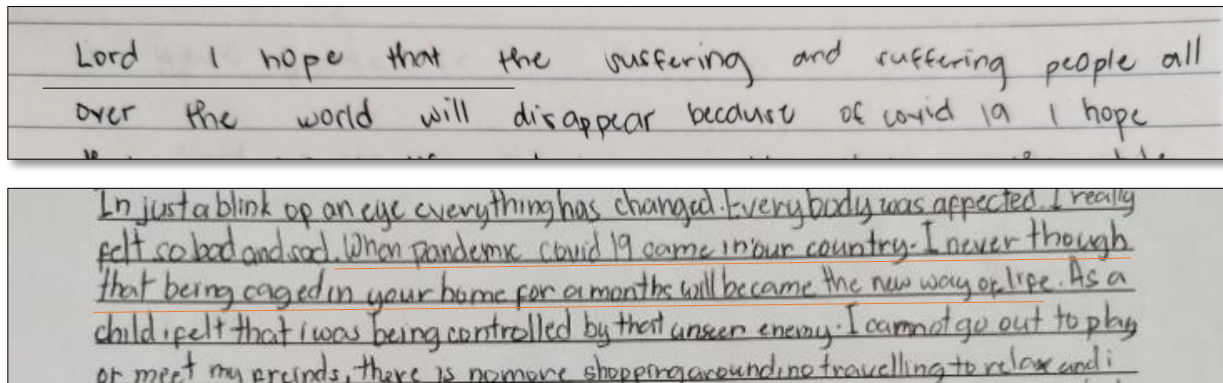 Lord I hope that the susfering and suffering people all
over the world will disappear because of covid 19 I hope
In just a blink op an eye everything has changed. Everybody was appected. I really
felt so bad and sad. When pandemic covid 19 came in our country. I never though
that being caged in your home for a months will became the new way of lipe. As a
child i felt that i was being controlled by that unseen enemy. I cannot go out to play
or meet my preinds, there is nomore shopping around, no travelling to relax and i